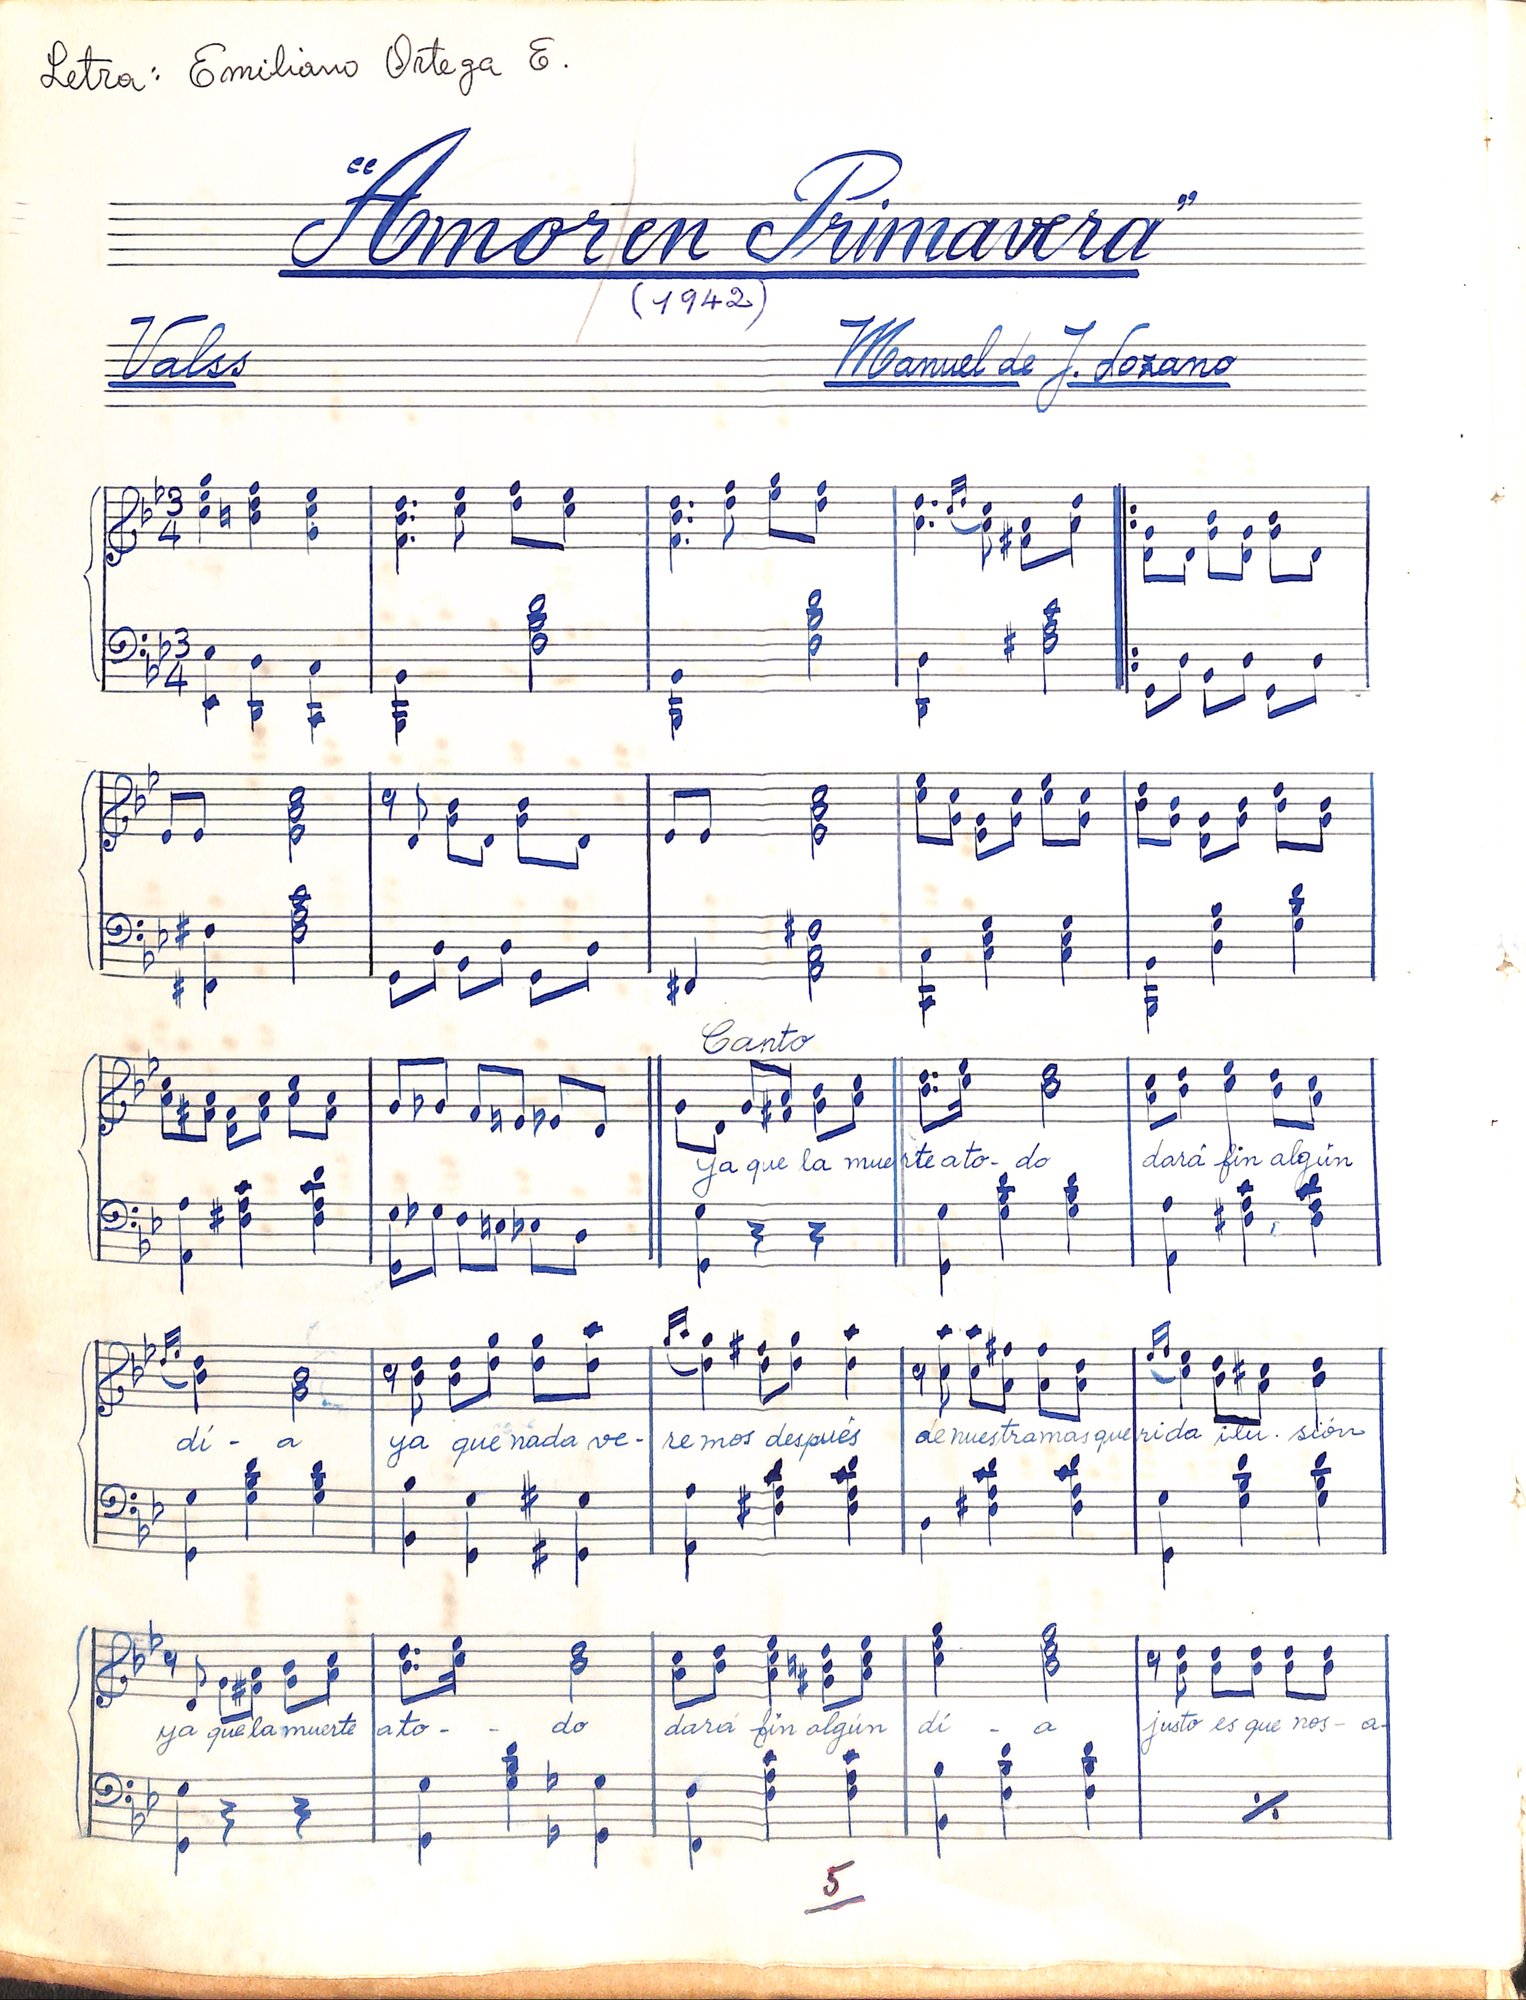 Letra: Emiliano Ortega E.
"Amor en Primavera"
(1942)
Valss Manuel de J. Lozano
3 4
3 4
Canto
ya que la muerte a to- do dará fin algún
dí - a ya que nada ve- remos después de nuestra mas querida ilu. sión
ya que la muerte a to - - do dará fin algún dí - a justo es que nos - a-
5